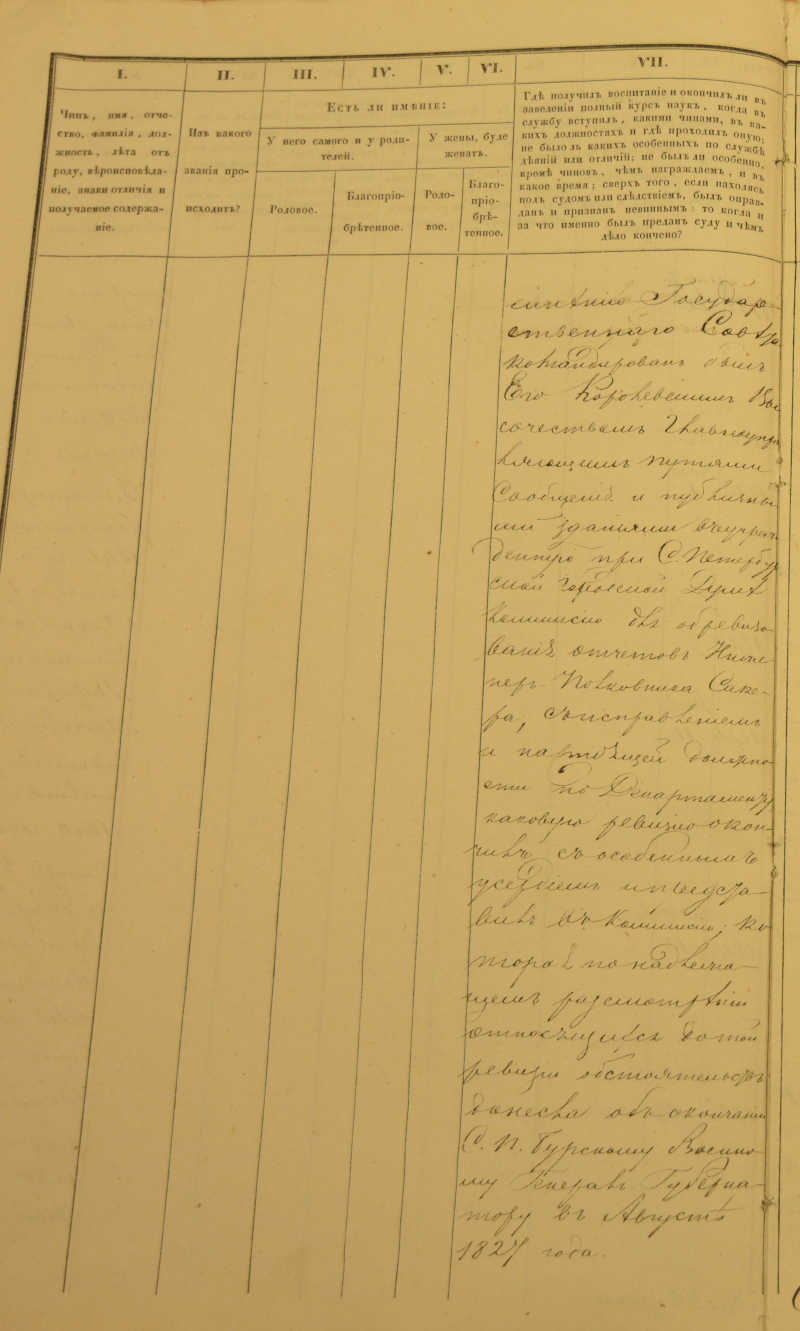 I. II. III. IV. V. VI. VII.
Чинъ, имя, отче-
ство, фамилія, дол-
жность, лѣта отъ
роду, вѣроисповѣда-
ніе, знаки отличія и
получаемое содержа-
ніе.
Изъ какого
званія про-
исходитъ?
Есть ли имѣніе:
У него самого и у роди-
телей.
У жены, буде
женатъ.
Родовое.
Благопріо-
брѣтенное.
Родо-
вое.
Благо-
пріо-
брѣ-
тенное.
Гдѣ получилъ воспитаніе и окончилъ ли въ
заведеніи полный курсъ наукъ, когда въ
службу вступилъ, какими чинами, въ ка-
кихъ должностяхъ и гдѣ проходилъ оную;
не было ль какихъ особенныхъ по службѣ
дѣяній или отличій; не былъ ли особенно,
кромѣ чиновъ, чѣмъ награждаемъ, и въ
какое время; сверхъ того, если находясь
подъ судомъ или слѣдствіемъ, былъ оправ-
данъ и признанъ невиннымъ: то когда и
за что именно былъ преданъ суду и чѣмъ
дѣло кончено?
Государ-
ственнаго
командированъ
Его Королевскимъ Вы-
сочествомъ Главноупра
вляющимъ путями
Сообщенія и публичны
ми зданіями въ учреж
денную при С. Петербу
ской Городской Думѣ
Коммисію для обревизо
ванія отчетовъ Инже-
неръ Полковника
ра, съ исправленіемъ
и настоящей должно
сти по Департаменту
каковую ревизію окон-
чилъ съ особеннымъ
усердіемъ и представ
вилъ въ Коммисію; ко
торая по надлежа-
щемъ разсмотрѣніи
относящихся до той
ревизіи обстоятельствъ
донесла объ окончаніи
С. П. Бургскому Военно-
му Генералъ Губерна-
тору въ Августѣ
1827 года.